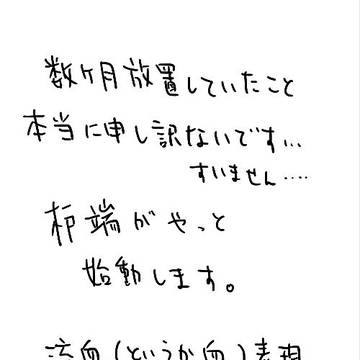 数ヶ月放置していたこと
本当に申し訳ないです...
すいません....
枦端がやっと
始動します。
流血(というか血)表現